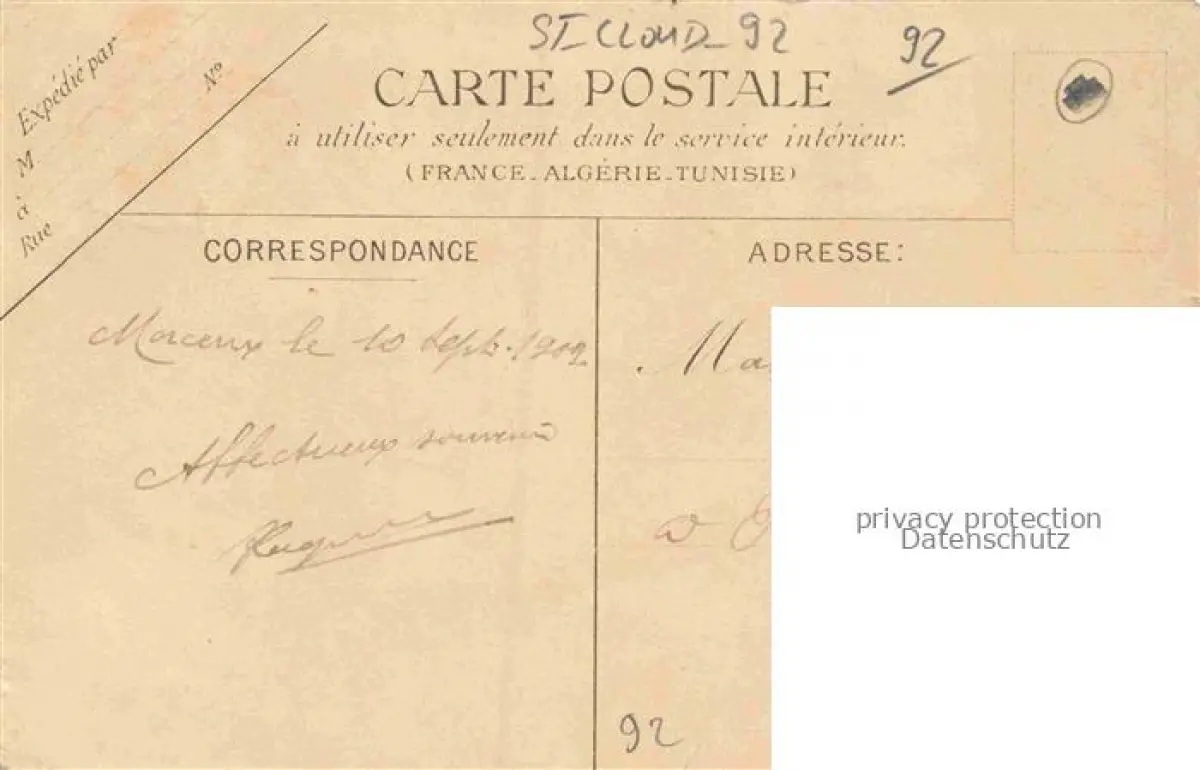 ST-CLOUD-92
92
Expédié par
M
à
Rue
N°
CARTE POSTALE
à utiliser seulement dans le service intérieur.
(FRANCE-ALGÉRIE-TUNISIE)
CORRESPONDANCE
ADRESSE:
le 10 Sept. 1902
Affectueux souvenir
Ma
à
92
privacy protection
Datenschutz